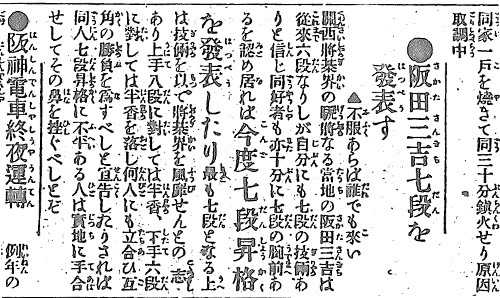 同家一戸を燒きて同三十分鎭火せり原因
取調中
●阪田三吉七段を
發表す
▲不服あらば誰でも來い
關西將棊界の覇將なる當地の阪田三吉は
從來六段なりしが自分にも七段の技倆あ
りと信じ同好者も亦十分に七段の腕前あ
るを認め居れば今度七段昇格
を發表したり最も七段となる上
は技倆を以て將棊界を風靡せんとの 志
あり上手八段に對しては半香、下手六段
に對しては半香を落し何人にも立合ひ互
角の勝負を爲すべしと宣告したりされば
同人七段昇格に不平ある人は實地に手合
せしてその鼻を挫ぐべしとぞ
●阪神電車終夜運轉 例年の